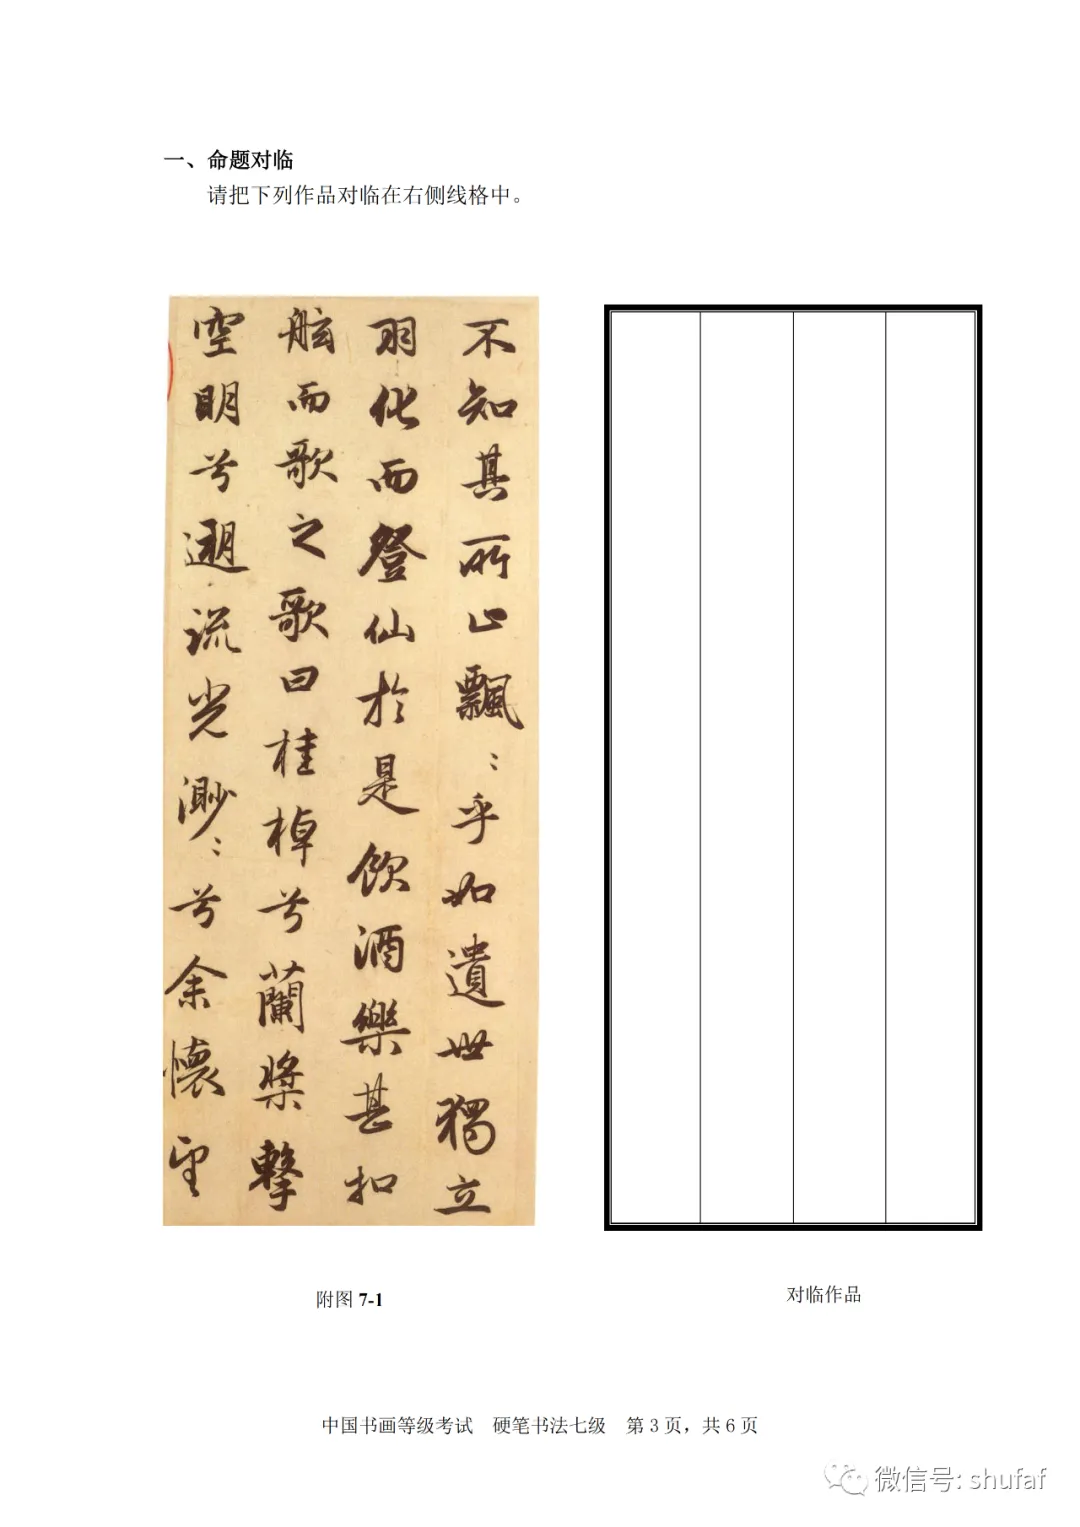 一、命题对临
请把下列作品对临在右侧线格中。
不知其所止飄〻乎如遺世獨立
羽化而登仙於是飲酒樂甚扣
舷而歌之歌曰桂棹兮蘭槳擊
空明兮遡流光渺〻兮余懷望
附图 7-1
对临作品
中国书画等级考试 硬笔书法七级 第 3 页，共 6 页
微信号: shufaf